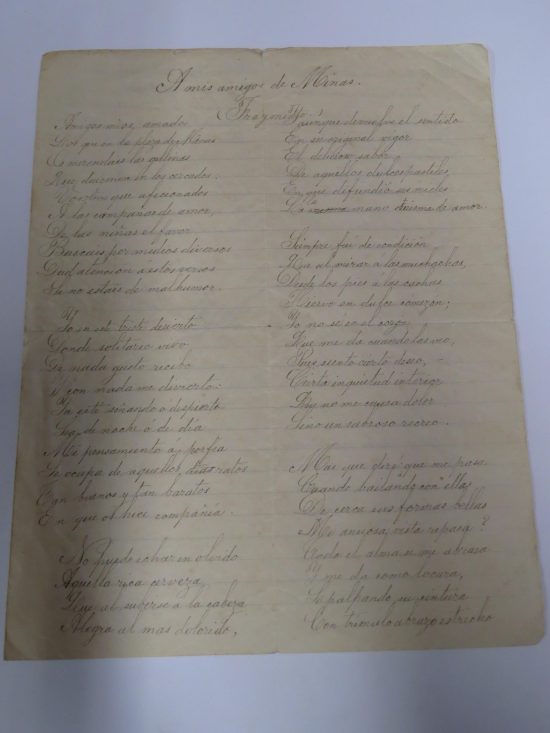 A mis amigos de Minas.
Fragmento
Amigos mios, amados
Que en la plaza de Minas
Os merendais las gallinas
Que duermen en los cercados;
Vosotros que aficionados
A las campanas de amor,
De las niñas el favor
Buscais por medios diversos
Dad atencion a estos versos
Si no estais de mal humor.
Yo en este triste desierto
Donde solitario vivo
De nada gusto recibo
Y con nada me divierto.
Ya esté soñando ó despierto
Sea de noche ó de dia
Mi pensamiento á porfia
Se ocupa de aquellos ratos
Tan buenos y tan baratos
En que os hice compañia.
No puedo echar en olvido
Aquella rica cerveza,
Que al subirse a la cabeza
Alegra al mas dolorido,
Y aunque devuelve el sentido
En su original vigor
El delicioso sabor
De aquellos dulces pasteles,
En que difundió sus mieles
La mano misma de amor.
Siempre fuí de condición
Que al mirar a las muchachas,
Desde los pies a las cachas
Hiervo en dulce comezon;
Yo no sé en el corazon
Que me da cuando las veo,
Pues siento cierto deseo,
Cierta inquietud interior
Que no me causa dolor
Sino un sabroso recreo.
Mas que diré que me pasa
Cuando bailando con ellas
De cerca sus formas bellas
Mi ansiosa vista repasa?
Toda el alma se me abrasa
Y me da como locura,
Si palpando su cintura
Con trémulo abrazo estrecho